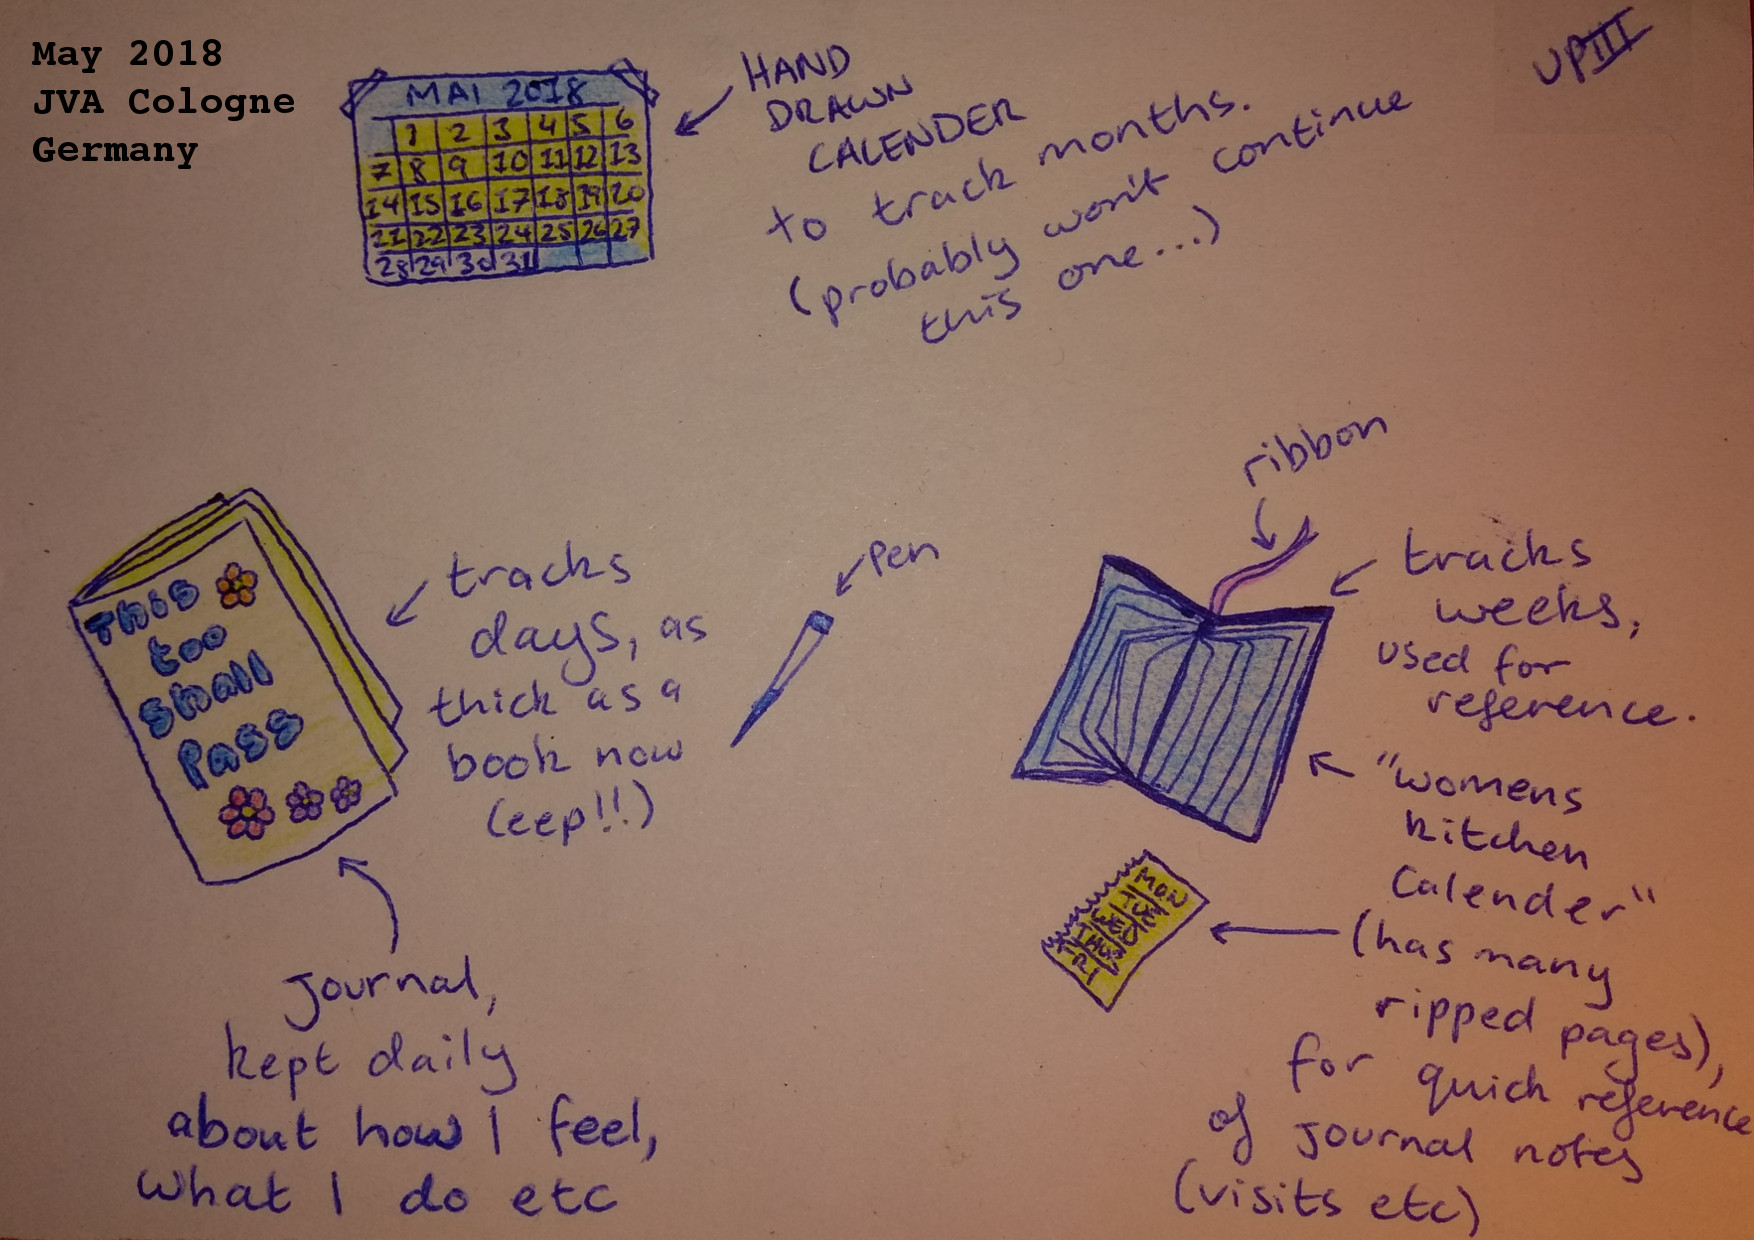 May 2018
JVA Cologne
Germany
UPIII
MAI 2018
1 2 3 4 5 6
7 8 9 10 11 12 13
14 15 16 17 18 19 20
21 22 23 24 25 26 27
28 29 30 31
HAND
DRAWN
CALENDER
to track months.
(probably won't continue
this one...)
This
too
shall
pass
tracks
days, as
thick as a
book now
(eep!!)
pen
Journal,
kept daily
about how I feel,
what I do etc
ribbon
tracks
weeks,
used for
reference.
"womens
kitchen
Calender"
(has many
ripped pages),
for quick reference
of journal notes
(visits etc)
MON
TUE
WED
THUR
FRI